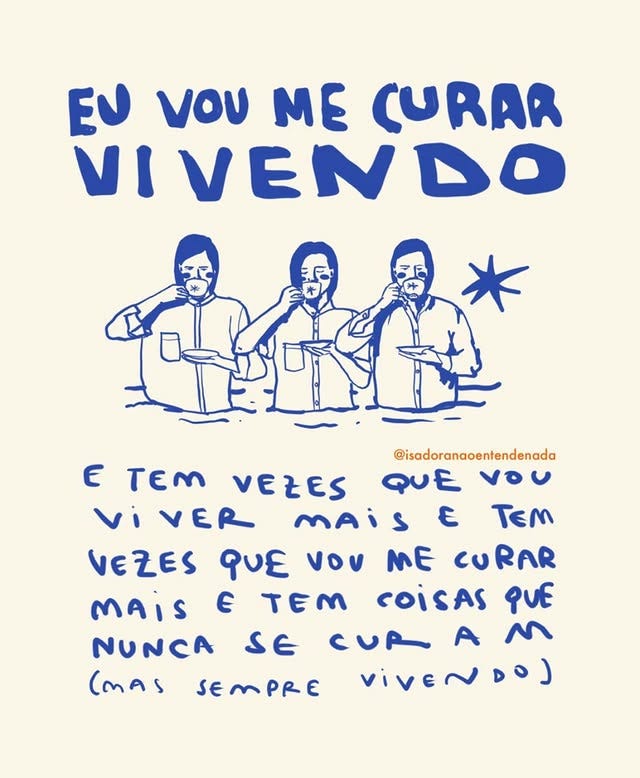 EU VOU ME CURAR
VIVENDO
@isadoranaoentendenada
E TEM VEZES QUE VOU
VIVER MAIS E TEM
VEZES QUE VOU ME CURAR
MAIS E TEM COISAS QUE
NUNCA SE CURAM
(MAS SEMPRE VIVENDO)